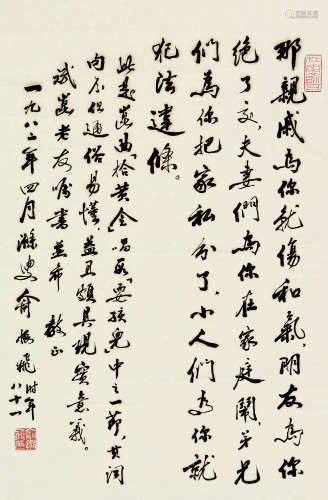 那親戚爲你就傷和氣，朋友爲你
絕了交，夫妻們爲你在家庭鬧，弟兄
們爲你把家私分了，小人們爲你就
犯法違條。
此是崑曲「拾黄金」唱段「耍孩兒」中之一節，其詞
句不但通俗易懂，並且頗具現實意義。
斌崑老友囑書並希 教正
一九八二年四月滌叟俞振飛時年
八十一